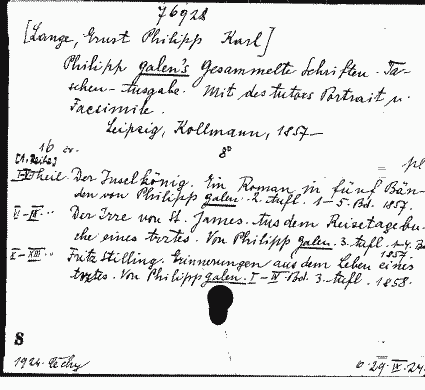 76928
[Lange, Ernst Philipp Karl]
Philipp Galen's Gesammelte Schriften. Ta-
schen-Ausgabe. Mit des Autors Portrait u.
Facsimile.
Leipzig, Kollmann, 1857-
8°
16 cr.
pl
[1. Reihe]
I-V Theil. Der Inselkönig. Ein Roman in fünf Bän-
den von Philipp Galen. 2. Aufl. 1-5. Bd. 1857.
V-IX. " Der Irre von St. James. Aus dem Reisetagebu-
che eines Arztes. Von Philipp Galen. 3. Aufl. 1-4. Bd.
1857.
X-XIII. " Fritz Stilling. Erinnerungen aus dem Leben eines
Arztes. Von Philipp Galen. I-IV. Bd. 3. Aufl. 1858.
8
1924.
29. IX. 24.